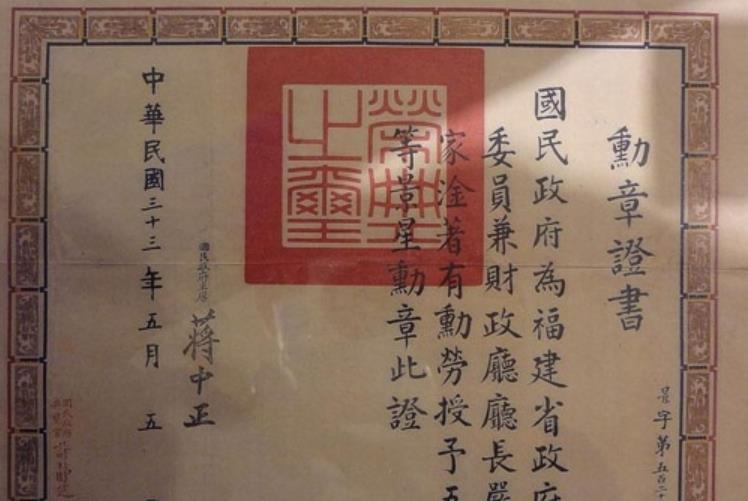 景字第五百二
勳章證書
國民政府為福建省政府
委員兼財政廳廳長嚴
家淦著有勳勞授予五
等景星勳章此證
榮典之璽
國民政府主席
蔣中正
中華民國三十三年五月五
國民政府
典璽官